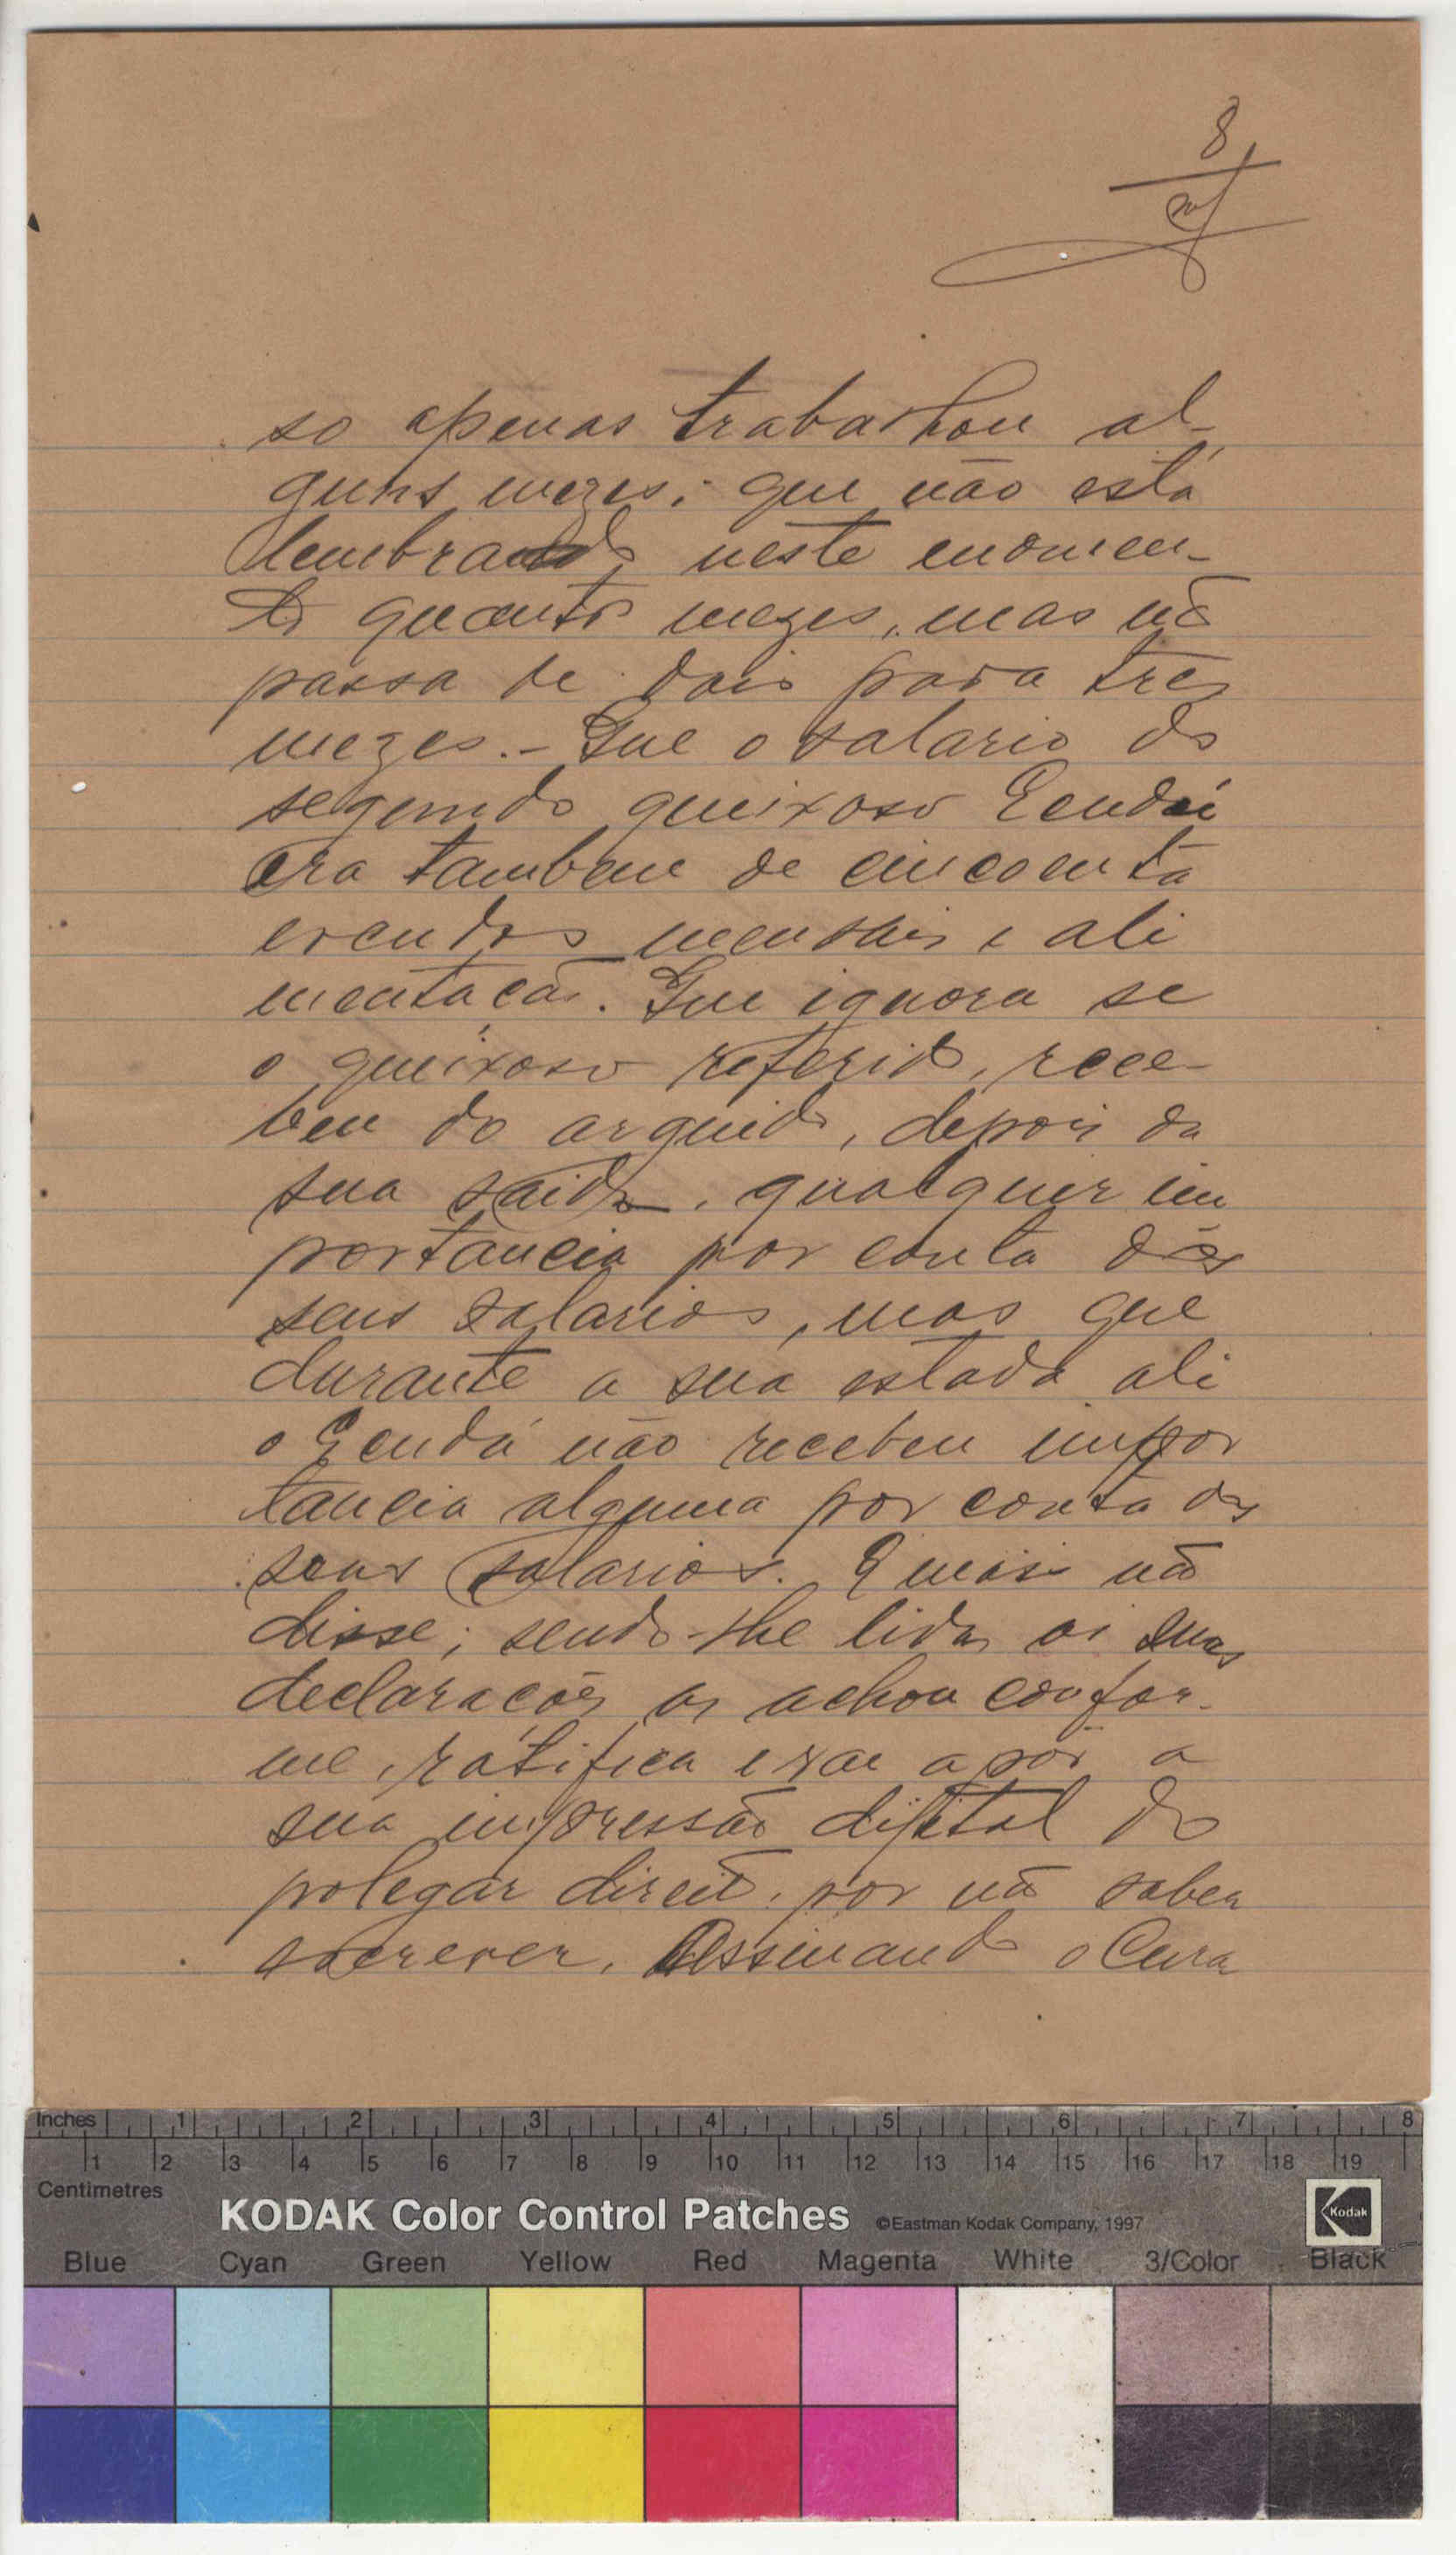 8
so apenas trabalhou al-
guns mezes; que não está
lembrando neste momen-
to quantos mezes, mas não
passa de dois para tres
mezes. - Que o salario do
segundo queixoso Gendá
era tambem de cincoenta
escudos mensais e ali
mentação. Que ignora se
o queixoso referido, rece-
beu do arguido, depois da
sua saida, qualquer im
portancia por conta dos
seus salarios, mas que
durante a sua estada ali
o Gendá não recebeu impor
tancia alguma por conta dos
seus salarios. E mais não
disse; sendo-lhe lidas as suas
declarações as achou confor-
me, ratifica e vae apôr a
sua impressão digital do
polegar direito, por não saber
escrever. Assinando o Cura
Inches 1 2 3 4 5 6 7 8
1 2 3 4 5 6 7 8 9 10 11 12 13 14 15 16 17 18 19
Centimetres
KODAK Color Control Patches ©Eastman Kodak Company, 1997 Kodak
Blue Cyan Green Yellow Red Magenta White 3/Color Black